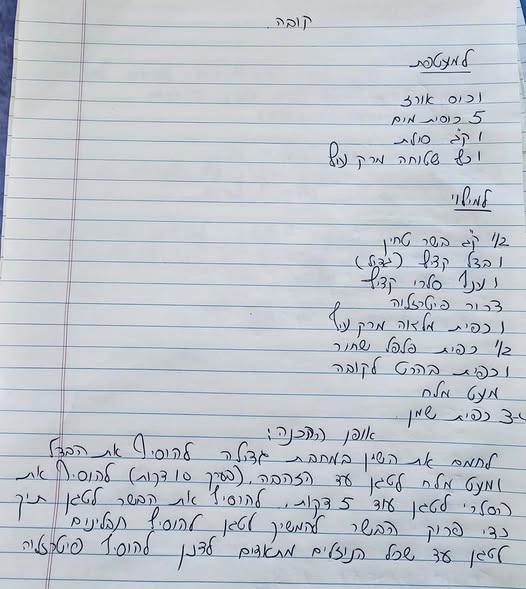 קובה
למעטפת
1 כוס אורז
5 כוסית מים
1 ק"ג סולת
1 כף שטוחה מרק עוף
למילוי
1/2 ק"ג בשר טחין
1 בצל קצוץ (גדול)
1 ענף סלרי קצוץ
צרור פיטרוזליה
1 כפית מלאה מרק עוף
1/2 כפית פלפל שחור
1 כפית בהרט לקובה
מעט מלח
2-3 כפית שמן
אופן ההכנה:
לחמם את השמן במחבת גדולה להוסיף את הבצל
ומעט מלח לטגן עד הזהבה (בערך 10 דקות) להוסיף את
הסלרי לטגן עוד 5 דקות, להוסיף את הבשר לטגן תוך
כדי פרוק הבשר להמשיך לטגן להוסיף תבלינים
לטגן עד שכל הנוזלים מתאדים לצנן להוסיף פיטרוזליה